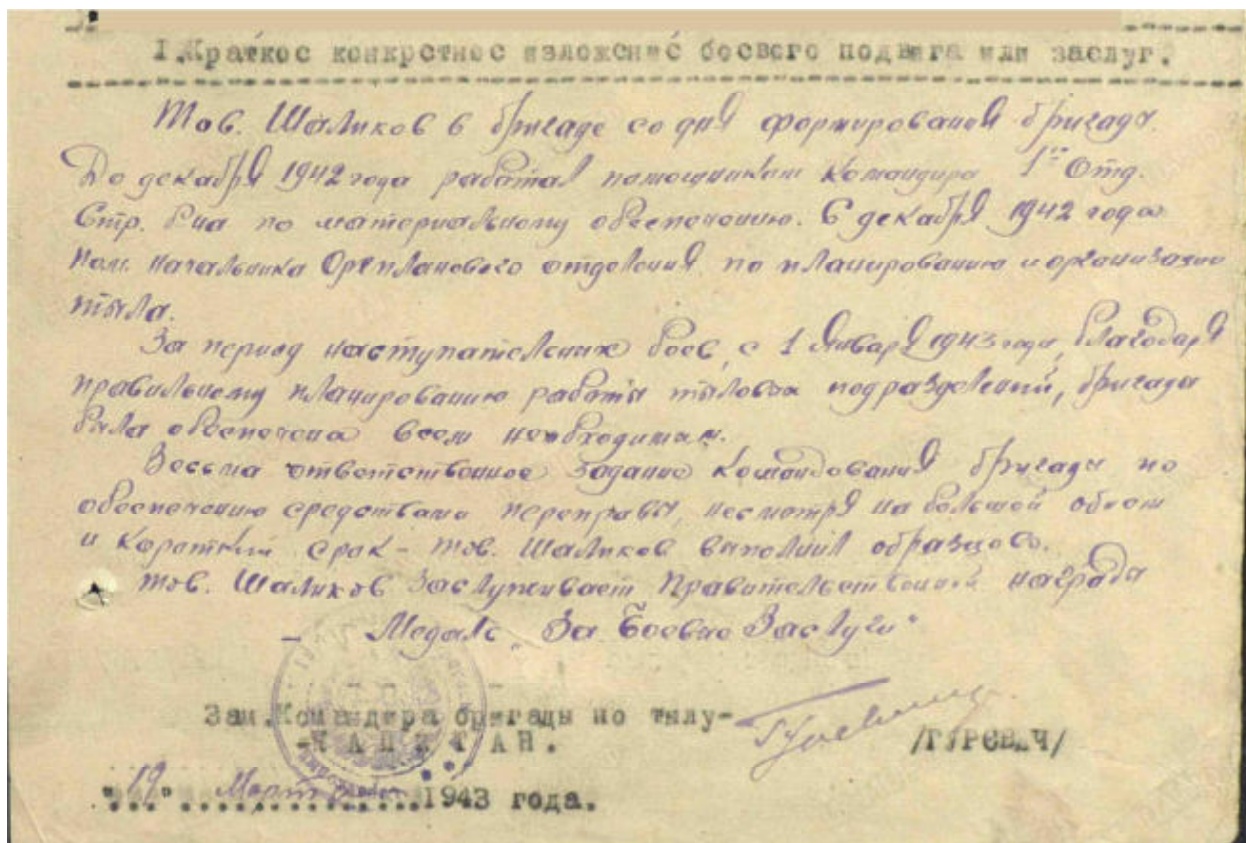 I. Краткое конкретное изложение боевого подвига или заслуг.
Тов. Шаликов в бригаде со дня формирования бригады.
До декабря 1942 года работал помощником командира 1го Отд.
Стр. б-на по материальному обеспечению. С декабря 1942 года
пом. начальника Оргпланового отделения, по планированию и организации
тыла.
За период наступательных боев, с 1 января 1943 года, благодаря
правильному планированию работы тыловых подразделений, бригада
была обеспечена всем необходимым.
Весьма ответственное задание командования бригады по
обеспечению средствами переправы, несмотря на большой объем
и короткий срок - тов. Шаликов выполнил образцово.
Тов. Шаликов заслуживает Правительственной награды
– Медаль „За Боевые Заслуги"
Зам. Командира бригады по тылу-
-КАПИТАН.
/ГУРЕВИЧ/
Марта 1943 года.